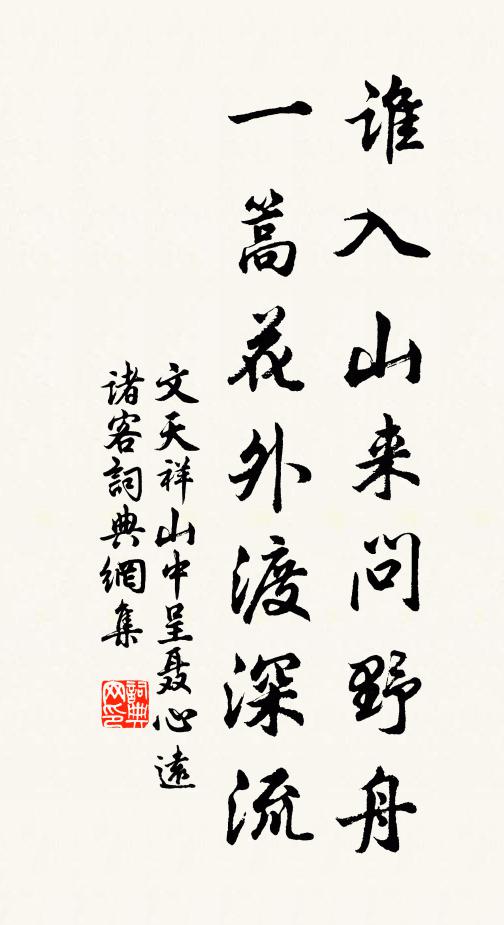 谁入山来问野舟
一篙花外渡深流
文天祥山中呈聂心远
诸客詞典網集
詞典网印